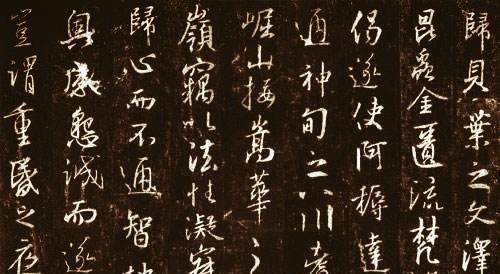 歸貝葉之文澤
昆蟲金匱流梵
偈遂使阿耨達
通神甸之八川耆
崛山接嵩華
嶺竊以法性凝寂
歸心而不通智地
奧感懇誠而遂
豈謂重昏之夜